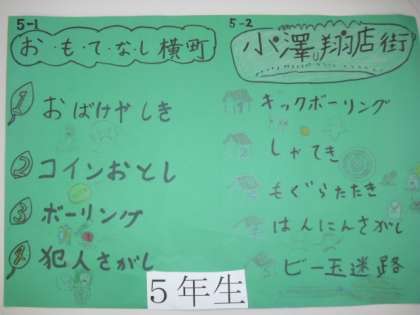 5-1
お・も・て・な・し 横町
1 おばけやしき
2 コインおとし
3 ボーリング
4 犯人さがし
5-2
小澤翔店街
1 キックボーリング
2 しゃてき
3 もぐらたたき
4 はんにんさがし
5 ビー玉迷路
5年生